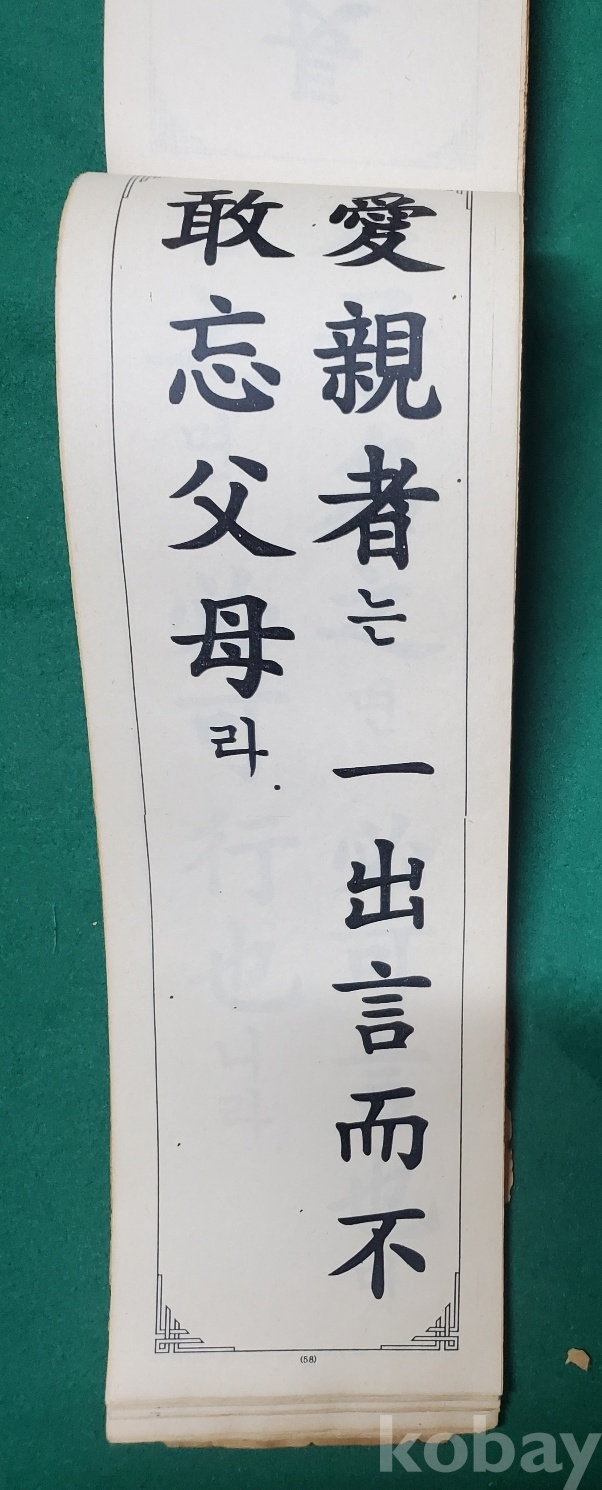 愛親者는 一出言而不
敢忘父母라
(58)
kobay